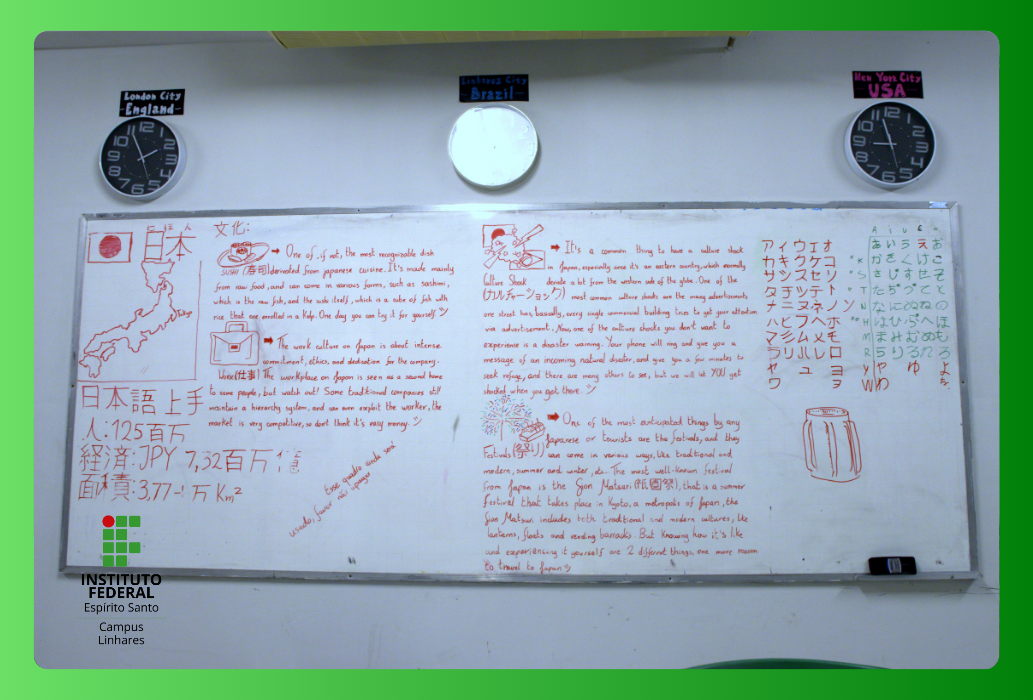 London City
England
Linhares City
Brazil
New York City
USA
12 1 2 3 4 5 6 7 8 9 10 11
12 1 2 3 4 5 6 7 8 9 10 11
にほん
日本
Tokyo
日本語上手
人:125百万
経済:JPY 7,32百万
面積:3,77 万 Km²
文化:
Sushi (寿司)
One of, if not, the most recognizable dish
derivated from japanese cuisine. It's made mainly
from raw food, and can come in various forms, such as sashimi,
which is the raw fish, and the sushi itself, which is a cube of fish with
rice that are enrolled in a Kelp. One day you can try it for yourself ツ
Work(仕事)
The work culture on Japan is about intense
commitment, ethics, and dedication for the company.
The workplace on Japan is seen as a second home
to some people, but watch out! Some traditional companies still
maintain a hierarchy system, and can even exploit the worker, the
market is very competitive, so dont think it's easy money. ツ
Esse quadro ainda será
usado, favor não apagar
Culture Shock
(カルチャーショック)
It's a common thing to have a culture shock
in Japan, especially since it's an eastern country, which normally
deviate a lot from the western side of the globe. One of the
most common culture shocks are the many advertisements
one street has, basically, every single commercial building tries to get your attention
via advertisement. Now, one of the culture shocks you don't want to
experience is a disaster warning. Your phone will ring and give you a
message of an incoming natural disaster, and give you a few minutes to
seek refuge, and there are many others to see, but we will let YOU get
shocked when you get there. ツ
Festivals (祭り)
One of the most anticipated things by any
Japanese or tourists are the festivals, and they
can come in various ways, like traditional and
modern, summer and winter, etc. The most well-known festival
from Japan is the Gion Matsuri (祇園祭), that is a summer
festival that takes place in Kyoto, a metropolis of Japan, the
Gion Matsuri includes both traditional and modern cultures, like
lanterns, floats and vending barracks. But Knowing how it's like
and experiencing it yourself are 2 different things, one more reason
to travel to Japan ツ
アイウエオ
カキクケコ
サシスセソ
タチツテト
ナニヌネノン
ハヒフヘホ
マミムメモ
ラリルレロ
ヤ ユ ヨ
ワ ヲ
A I U E
あいうえお
K かきくけこ
S さしすせそ
T たちつてと
N なにぬねの
H はひふへほ
M まみむめも
R らりるれろ
Y や ゆ よ
W わ を
INSTITUTO
FEDERAL
Espírito Santo
Campus
Linhares